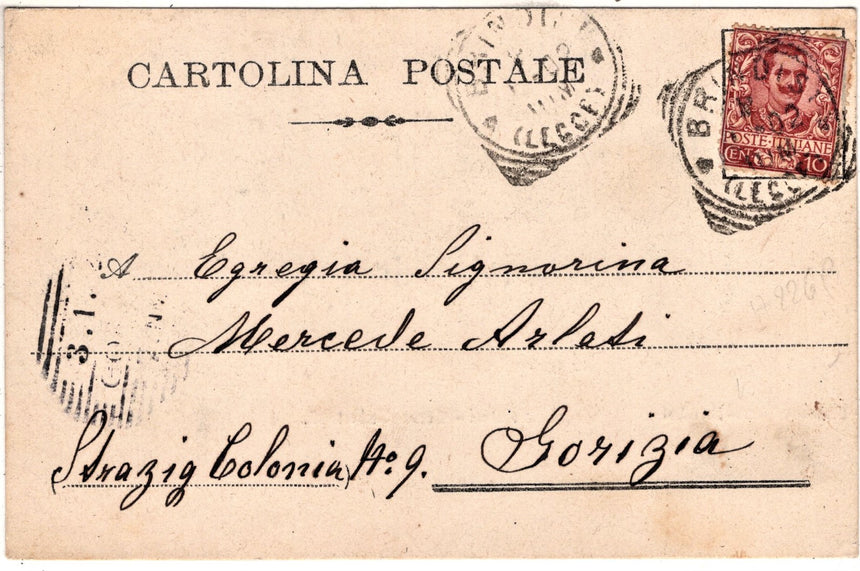 CARTOLINA POSTALE
BRINDISI
02
(LECCE)
BRINDISI
02
(LECCE)
POSTE·ITALIANE
CENT. 10
A Egregia Signorina
Mercede Arlati
3.1.
(Strazig Colonia) No 9. Gorizia